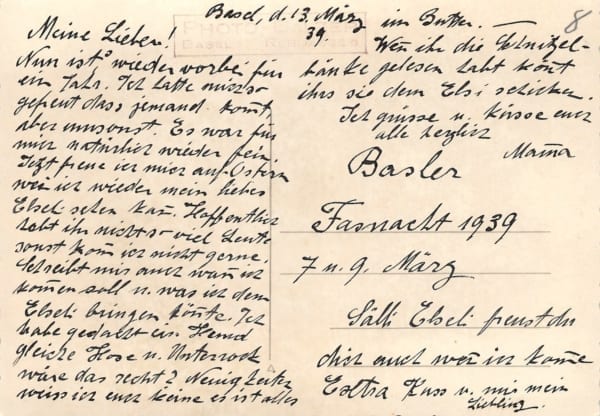 Basel, d. 13. März
39.
8
PHOTO
BASEL
Meine Lieben!
Nun ist's wieder vorbei für
ein Jahr. Ich hatte mich so
gefreut dass jemand kommt,
aber umsonst. Es war für
mich natürlich wieder fein.
Jetzt freue ich mich auf Ostern
wen ich wieder mein liebes
Elseli sehen kan. Hoffentlich
habt ihr nicht so viel Leute
sonst kom ich nicht gerne.
Schreibt mir auch wan ich
komen soll u. was ich dem
Elseli bringen könte. Ich
habe gedacht ein Hemd
gleiche Hose u. Unterrock
wäre das recht? Neuigkeiten
weiss ich euch keine es ist alles
im Butter. —
Wen ihr die Schnitzel-
bänke gelesen habt könt
ihr sie dem Elsi schicken.
Ich grüsse u. küsse euch
alle herzlich
Mama
Basler
Fasnacht 1939
7 u. 9. März
Sälli Elseli freust du
dich auch wen ich kome
Extra Kuss u. mis mein
Liebling.